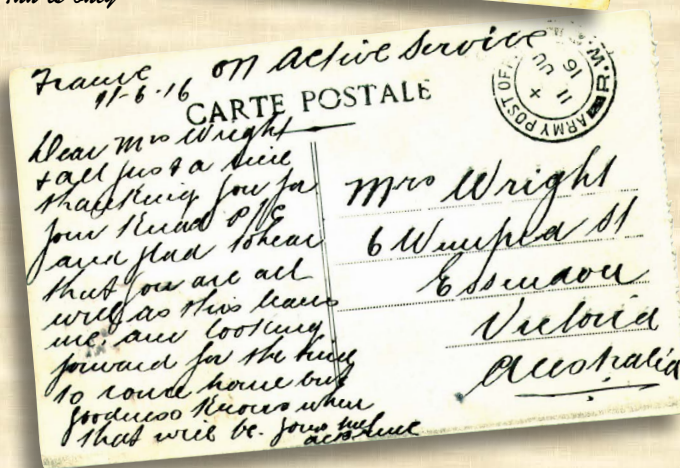 France on Active Service
11-6-16
CARTE POSTALE
Dear Mrs Wright
& all just a line
thanking you for
your kind P/C
and glad to hear
that you are all
well as this leaves
me. am looking
forward for the time
to come home but
goodness knows when
that will be. yours
Mrs Wright
6 Winifred St
Essendon
Victoria
Australia
ARMY POST OF
11 JU 16